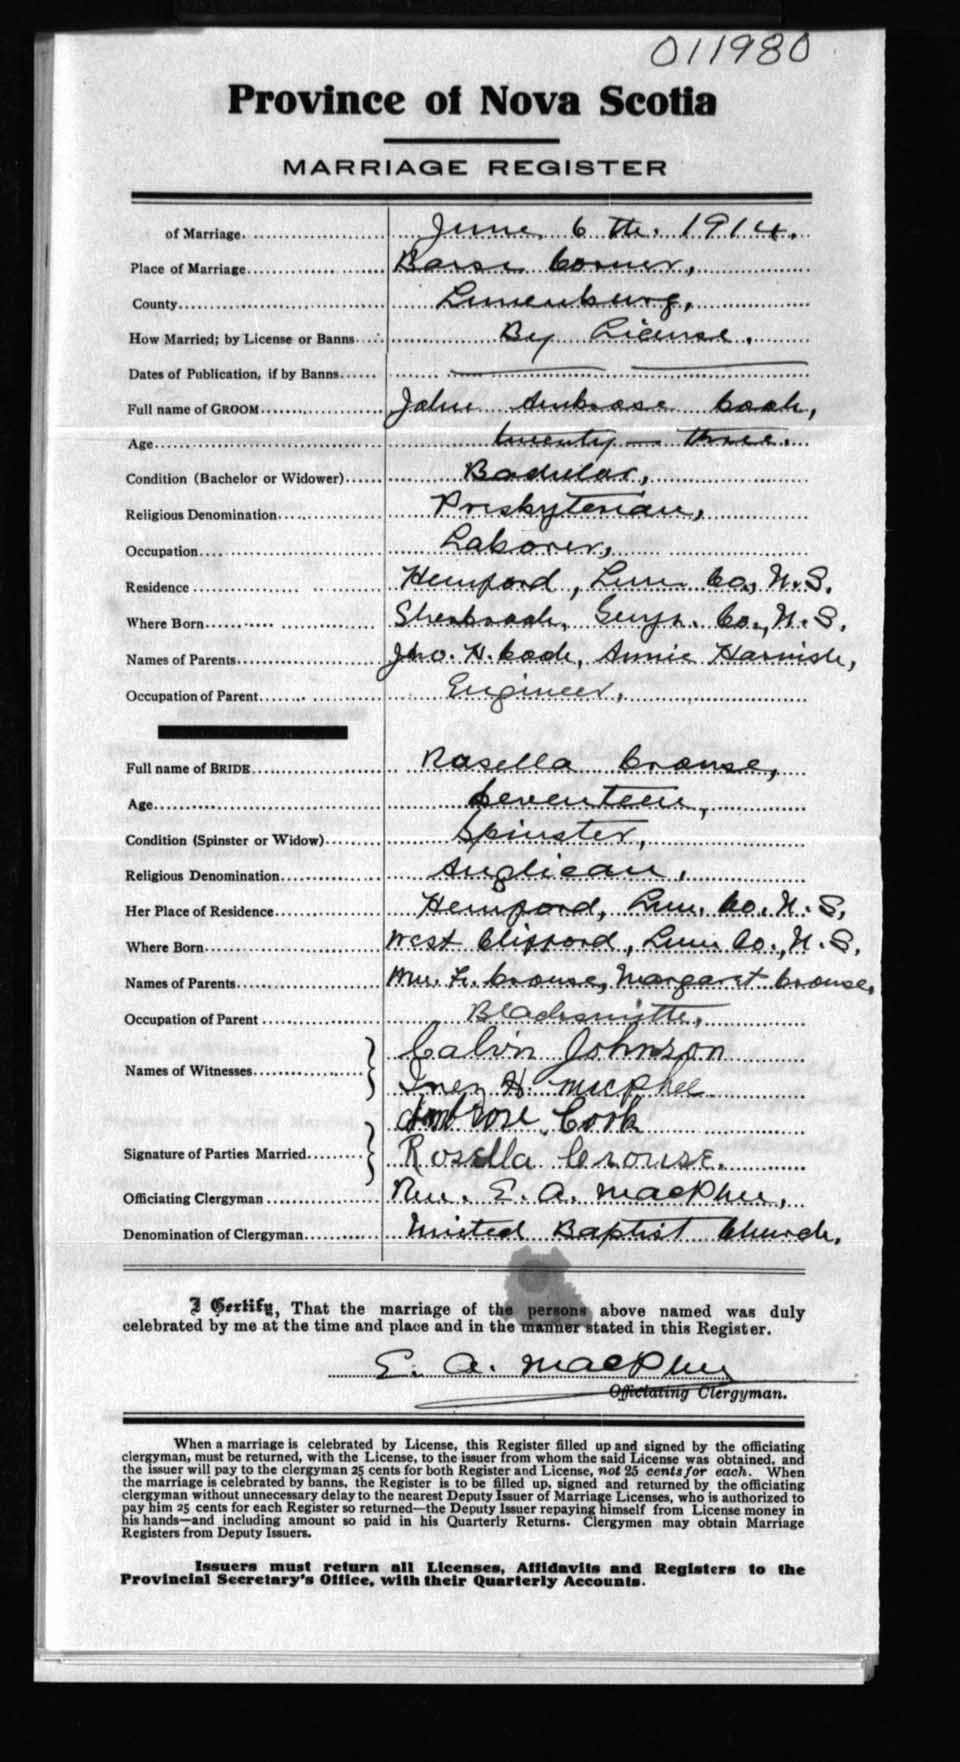 011980
Province of Nova Scotia
MARRIAGE REGISTER
of Marriage June 6 th. 1914.
Place of Marriage Barss Corner,
County Lunenburg,
How Married; by License or Banns By License.
Dates of Publication, if by Banns
Full name of GROOM John Ambrose Cook,
Age twenty-three.
Condition (Bachelor or Widower) Bachelor,
Religious Denomination Presbyterian,
Occupation Laborer,
Residence Hemford, Lun. Co, N.S.
Where Born Sherbrook, Guys. Co., N.S.
Names of Parents Jno. H. Cook, Annie Harnish,
Occupation of Parent Engineer,
Full name of BRIDE Rosella Crouse,
Age Seventeen,
Condition (Spinster or Widow) Spinster,
Religious Denomination Anglican,
Her Place of Residence Hemford, Lun. Co. N.S,
Where Born West Clifford, Lun Co., N.S,
Names of Parents Wm. H. Crouse, Margaret Crouse,
Occupation of Parent Blacksmith,
Names of Witnesses Calvin Johnson
Inez H. MacPhee
Ambrose Cook
Signature of Parties Married Rosella Crouse.
Officiating Clergyman Rev. E. A. MacPhee,
Denomination of Clergyman United Baptist Church,
I Certify, That the marriage of the persons above named was duly
celebrated by me at the time and place and in the manner stated in this Register.
E. A. MacPhee
Officiating Clergyman.
When a marriage is celebrated by License, this Register filled up and signed by the officiating
clergyman, must be returned, with the License, to the issuer from whom the said License was obtained, and
the issuer will pay to the clergyman 25 cents for both Register and License, not 25 cents for each. When
the marriage is celebrated by banns, the Register is to be filled up, signed and returned by the officiating
clergyman without unnecessary delay to the nearest Deputy Issuer of Marriage Licenses, who is authorized to
pay him 25 cents for each Register so returned—the Deputy Issuer repaying himself from License money in
his hands—and including amount so paid in his Quarterly Returns. Clergymen may obtain Marriage
Registers from Deputy Issuers.
Issuers must return all Licenses, Affidavits and Registers to the
Provincial Secretary's Office, with their Quarterly Accounts.